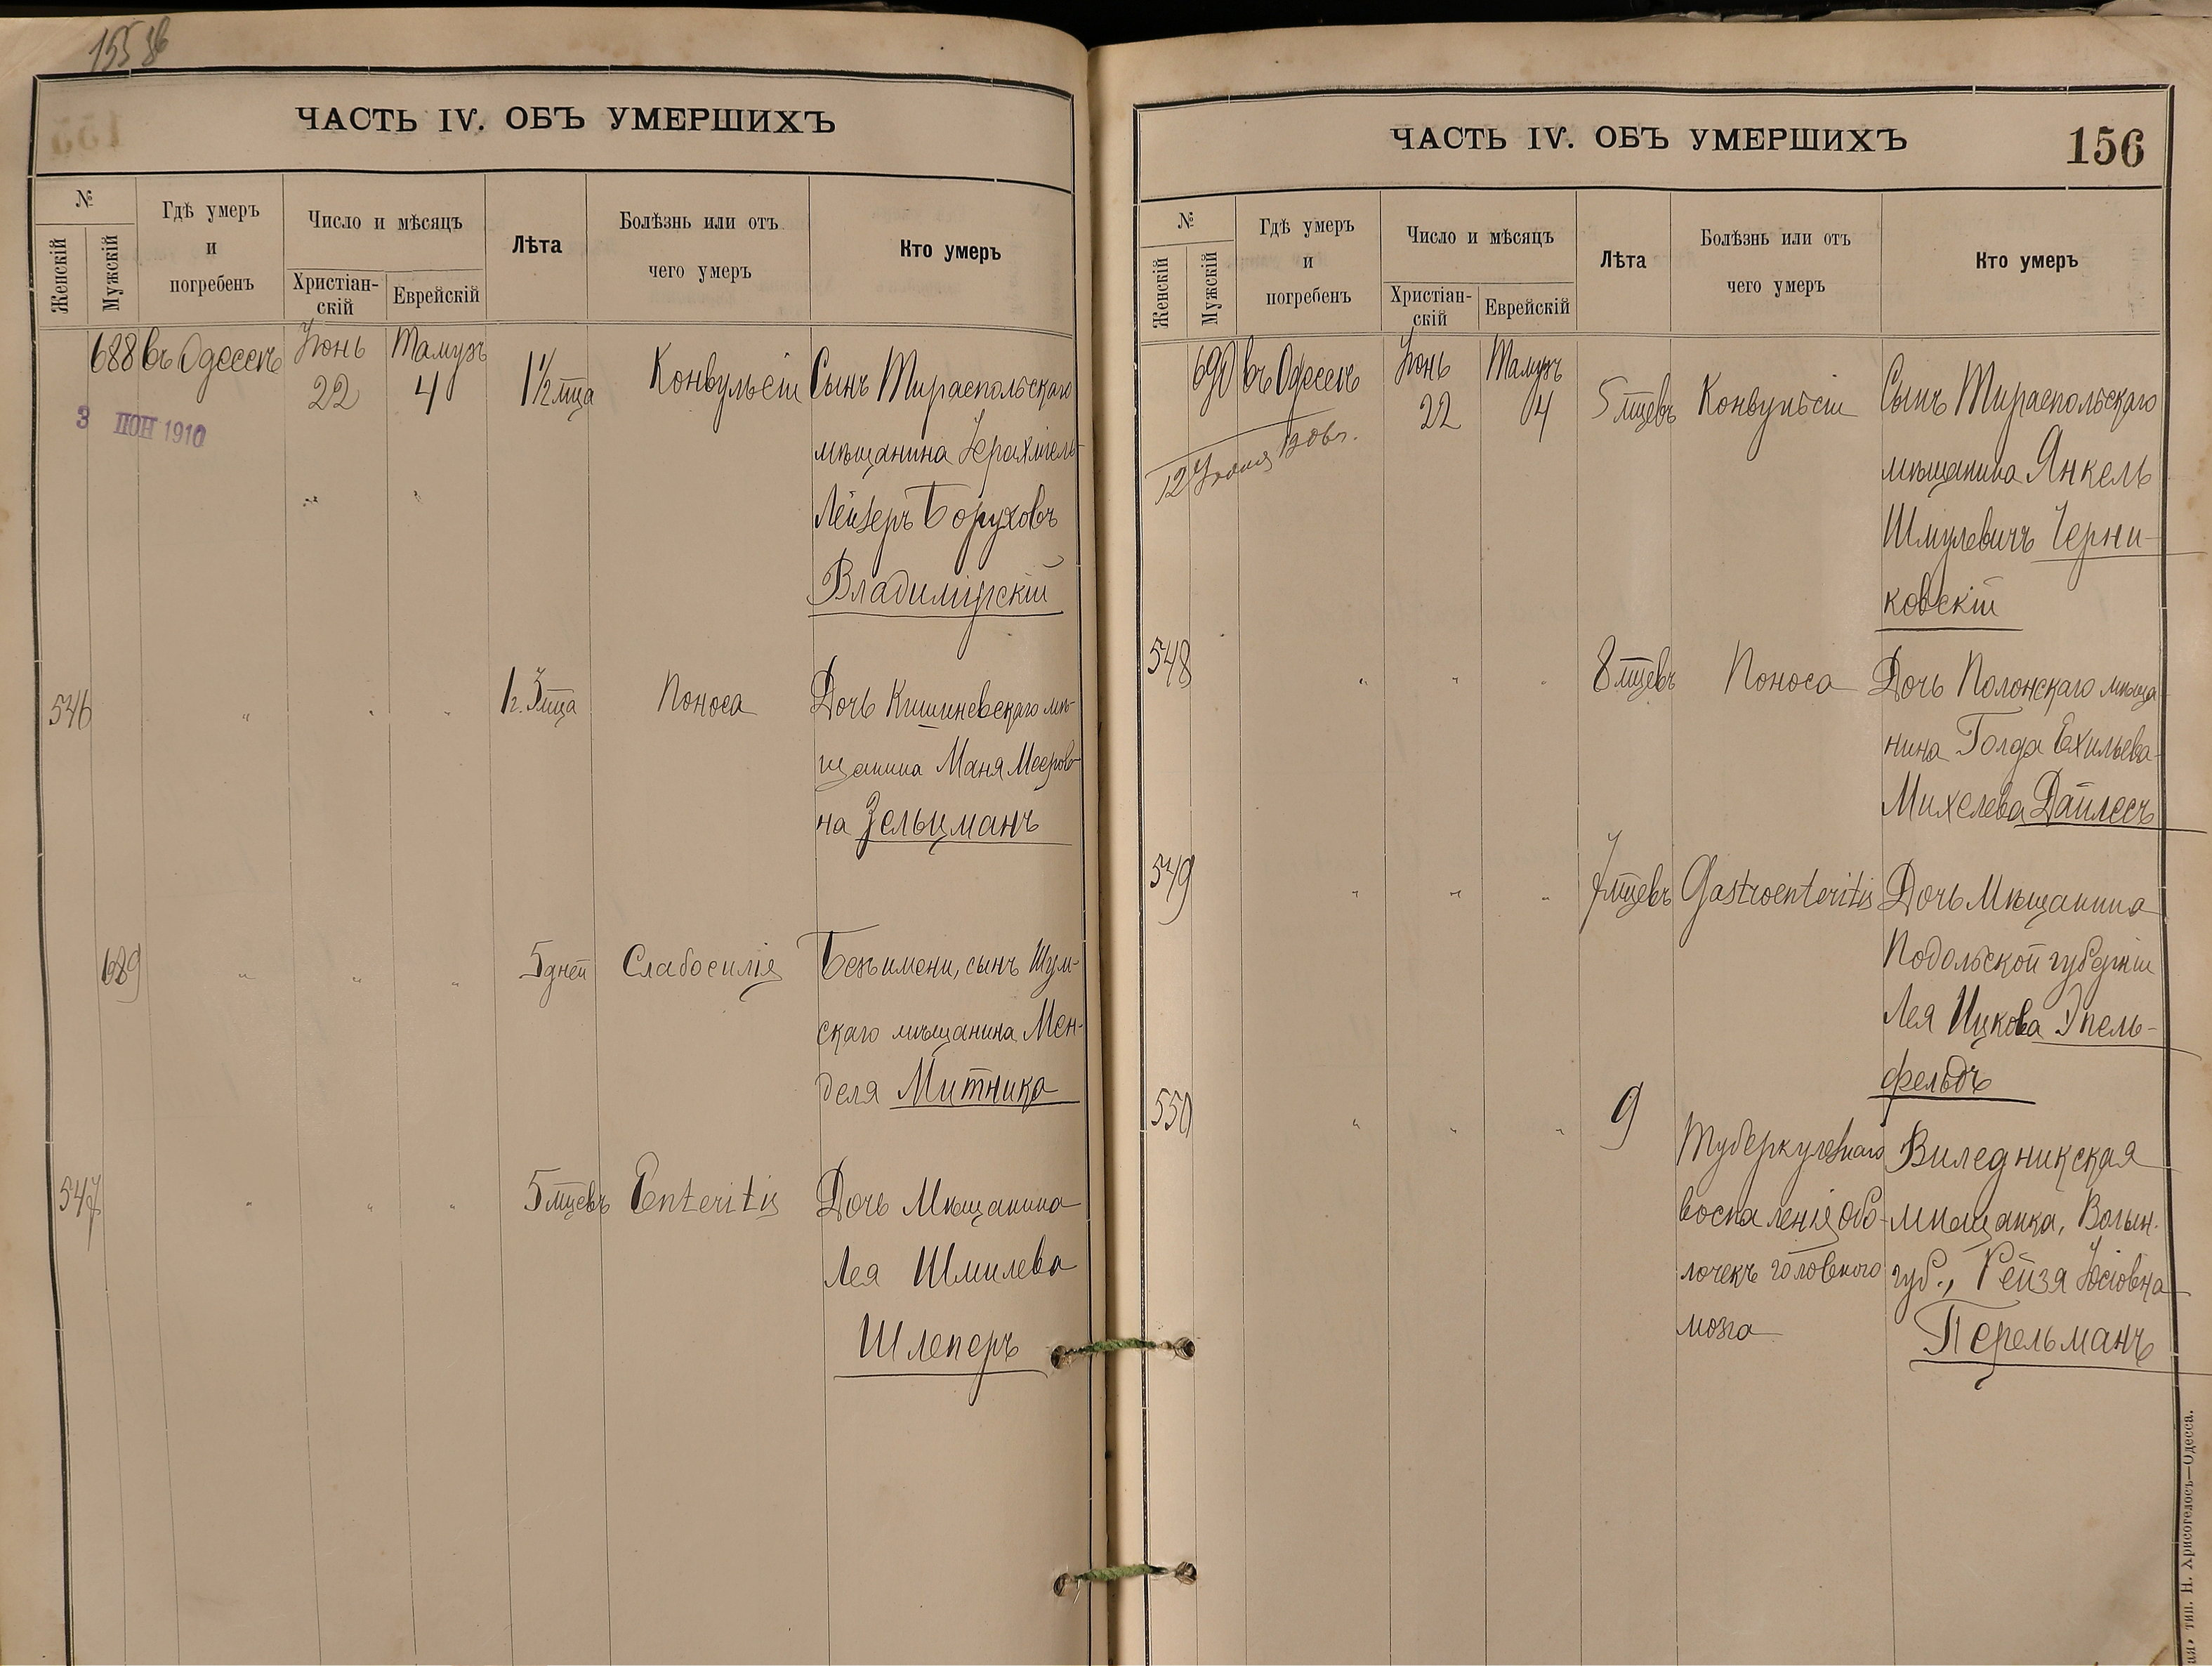 ЧАСТЬ IV. ОБЪ УМЕРШИХЪ
№
Женскій
Мужскій
Гдѣ умеръ
и
погребенъ
Число и мѣсяцъ
Христіан-
скій
Еврейскій
Лѣта
Болѣзнь или отъ
чего умеръ
Кто умеръ
688 въ Одессѣ Іюнь 22 Тамузъ 4 1½ мца Конвульсіи Сынъ Тираспольскаго
мѣщанина Іерахміель
Лейзеръ Боруховъ
Владимірскій
3 ІЮН 1910
546 " " " 1 г. 3 мца Поноса Дочь Кишиневскаго мѣ-
щанина Маня Мееров-
на Зельцманъ
689 " " " 5 дней Слабосилія Безъ имени, сынъ Шум-
скаго мѣщанина Мен-
деля Митника
547 " " " 5 мцевъ Enteritis Дочь Мѣщанина
Лея Шмилева
Шлеперъ
ЧАСТЬ IV. ОБЪ УМЕРШИХЪ
156
№
Женскій
Мужскій
Гдѣ умеръ
и
погребенъ
Число и мѣсяцъ
Христіан-
скій
Еврейскій
Лѣта
Болѣзнь или отъ
чего умеръ
Кто умеръ
690 въ Одессѣ Іюнь 22 Тамузъ 4 5 мцевъ Конвульсіи Сынъ Тираспольскаго
мѣщанина Янкель
Шмулевичъ Черни-
ковскій
548 " " " 8 мцевъ Поноса Дочь Полонскаго мѣща-
нина Голда Ехильева-
Михелева Дайлесъ
549 " " " 7 мцевъ Gastroenteritis Дочь Мѣщанина
Подольской губерніи
Лея Ицкова Эпель-
фельдъ
550 " " " 9 Туберкулезнаго Виледникская
воспаленія обо- мѣщанка, Волын.
лочекъ головного губ., Рейзя Іосіовна
мозга Перельманъ
тип. Н. Хрисогелосъ—Одесса.